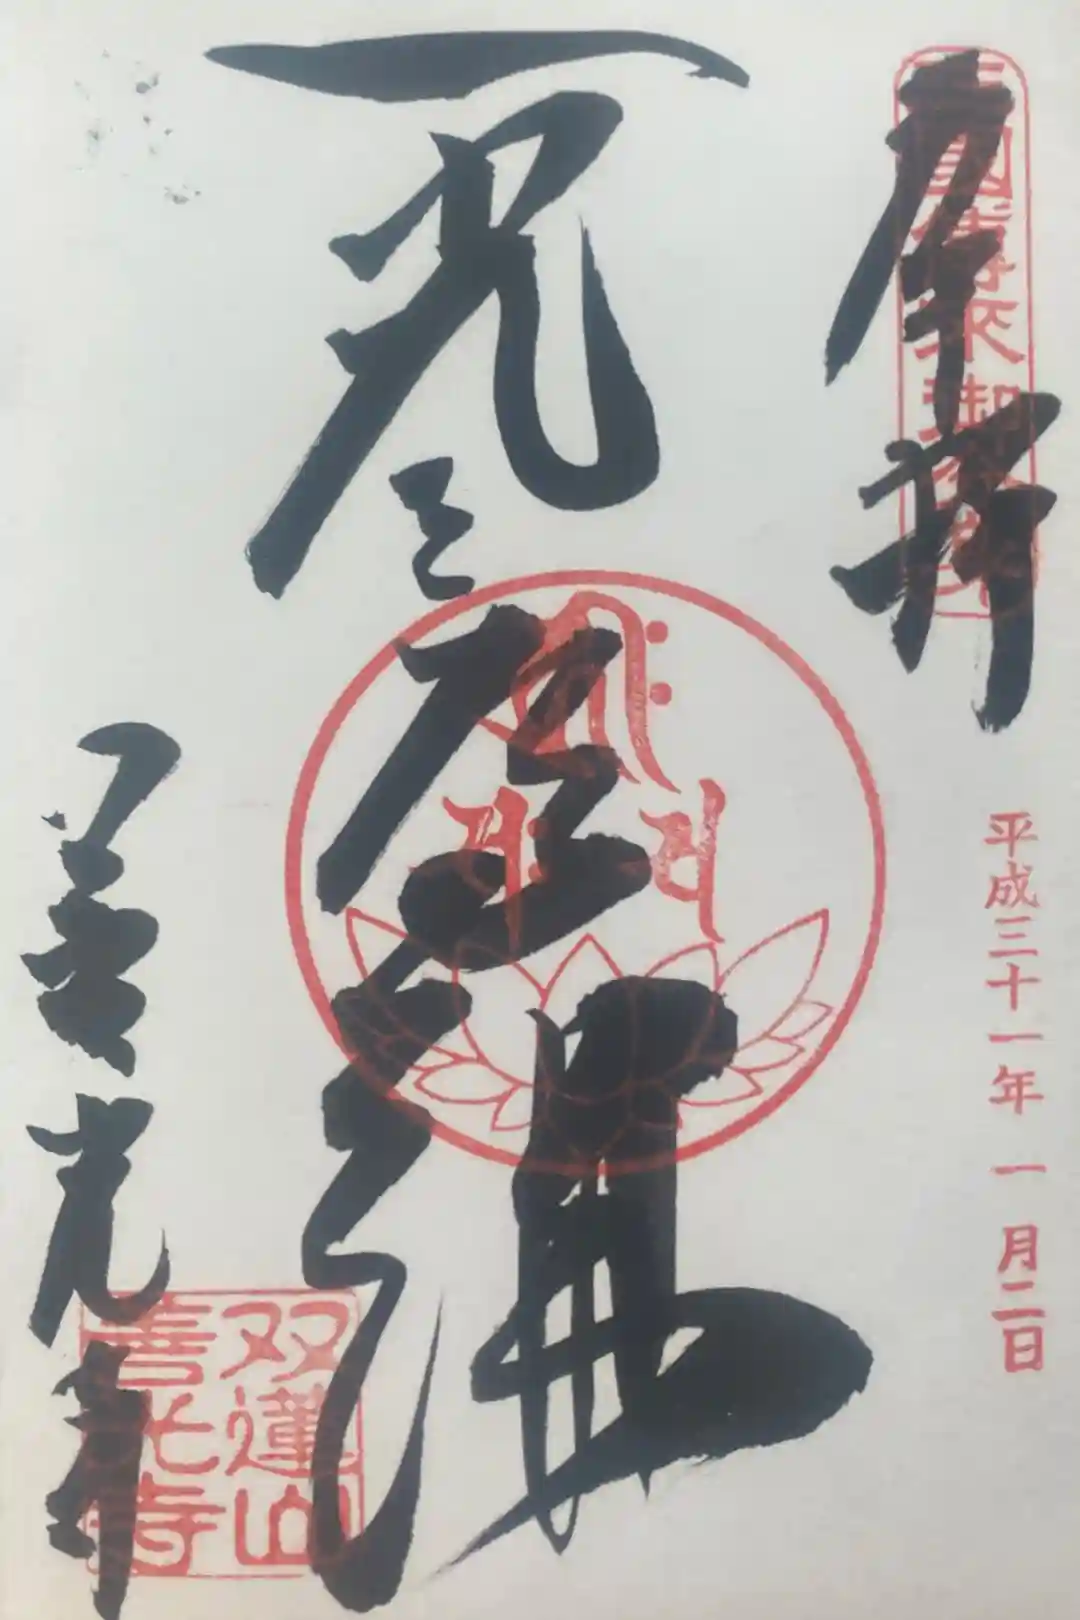 奉拝
三國傳来御
平成三十一年 一月二日
一光三尊佛
善光寺
双蓮山
善光寺